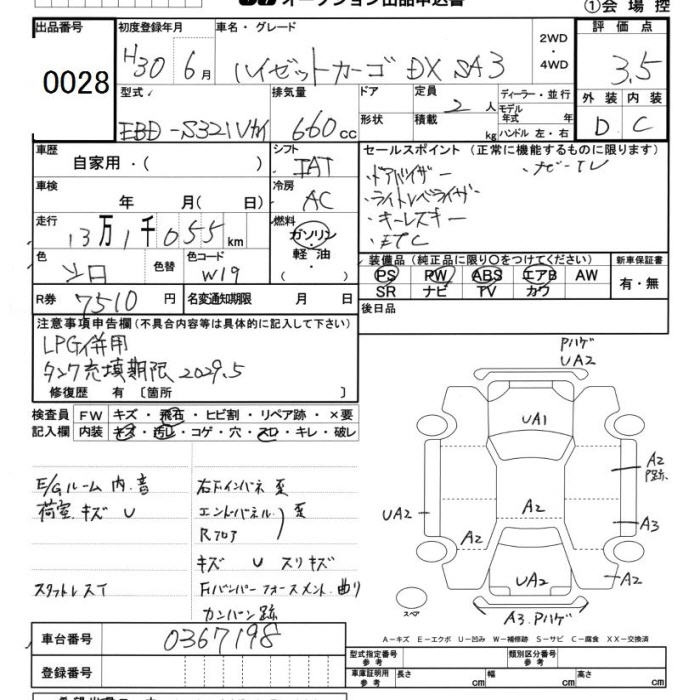 オークション出品申込書
①会場控
出品番号
0028
初度登録年月
H30 6月
車名・グレード
ハイゼットカーゴ DX SA3
2WD
・
4WD
評価点
3.5
外装 内装
D C
型式
EBD-S321V
排気量
660 cc
ドア
形状
定員
2人
積載
kg
ディーラー・並行
モデル年式 年
ハンドル 左・右
車歴
自家用・( )
シフト
IAT
セールスポイント (正常に機能するものに限ります)
・ドアバイザー
・ナビ-TV
・ライトレベライザー
・キーレスキー
・ETC
車検
年 月( 日)
冷房
AC
走行
13万1千055km
燃料
ガソリン
・
軽油
・
( )
色
シロ
色替
色コード
W19
装備品 (純正品に限り○をつけてください)
PS PW ABS エアB AW
SR ナビ TV カワ
新車保証書
有・無
R券
7510円
名変通知期限 月 日
後日品
注意事項申告欄 (不具合内容等は具体的に記入して下さい)
LPG併用
タンク充填期限 2029.5
修復歴 有 〔箇所 〕
検査員
記入欄
FW キズ・飛石・ヒビ割・リペア跡・×要
内装 キズ・汚レ・コゲ・穴・スレ・キレ・破レ
E/Gルーム 内.音
荷室.キズ U
スタットレスT
右Fインパネ 歪
エンドパネル
Rフロア
歪
キズ U スリキズ
Fバンパーフォースメント.曲り
カンバン跡
Pハゲ
UA2
UA1
A2
P跡
UA2
A2
A3
A2
UA2
A2
スペア
A3.Pハゲ
A－キズ E－エクボ U－凹み W－補修跡 S－サビ C－腐食 XX－交換済
車台番号
0367198
登録番号
型式指定番号
参考
類別区分番号
参考
車庫証明用
参考
長さ cm
幅 cm
高さ cm